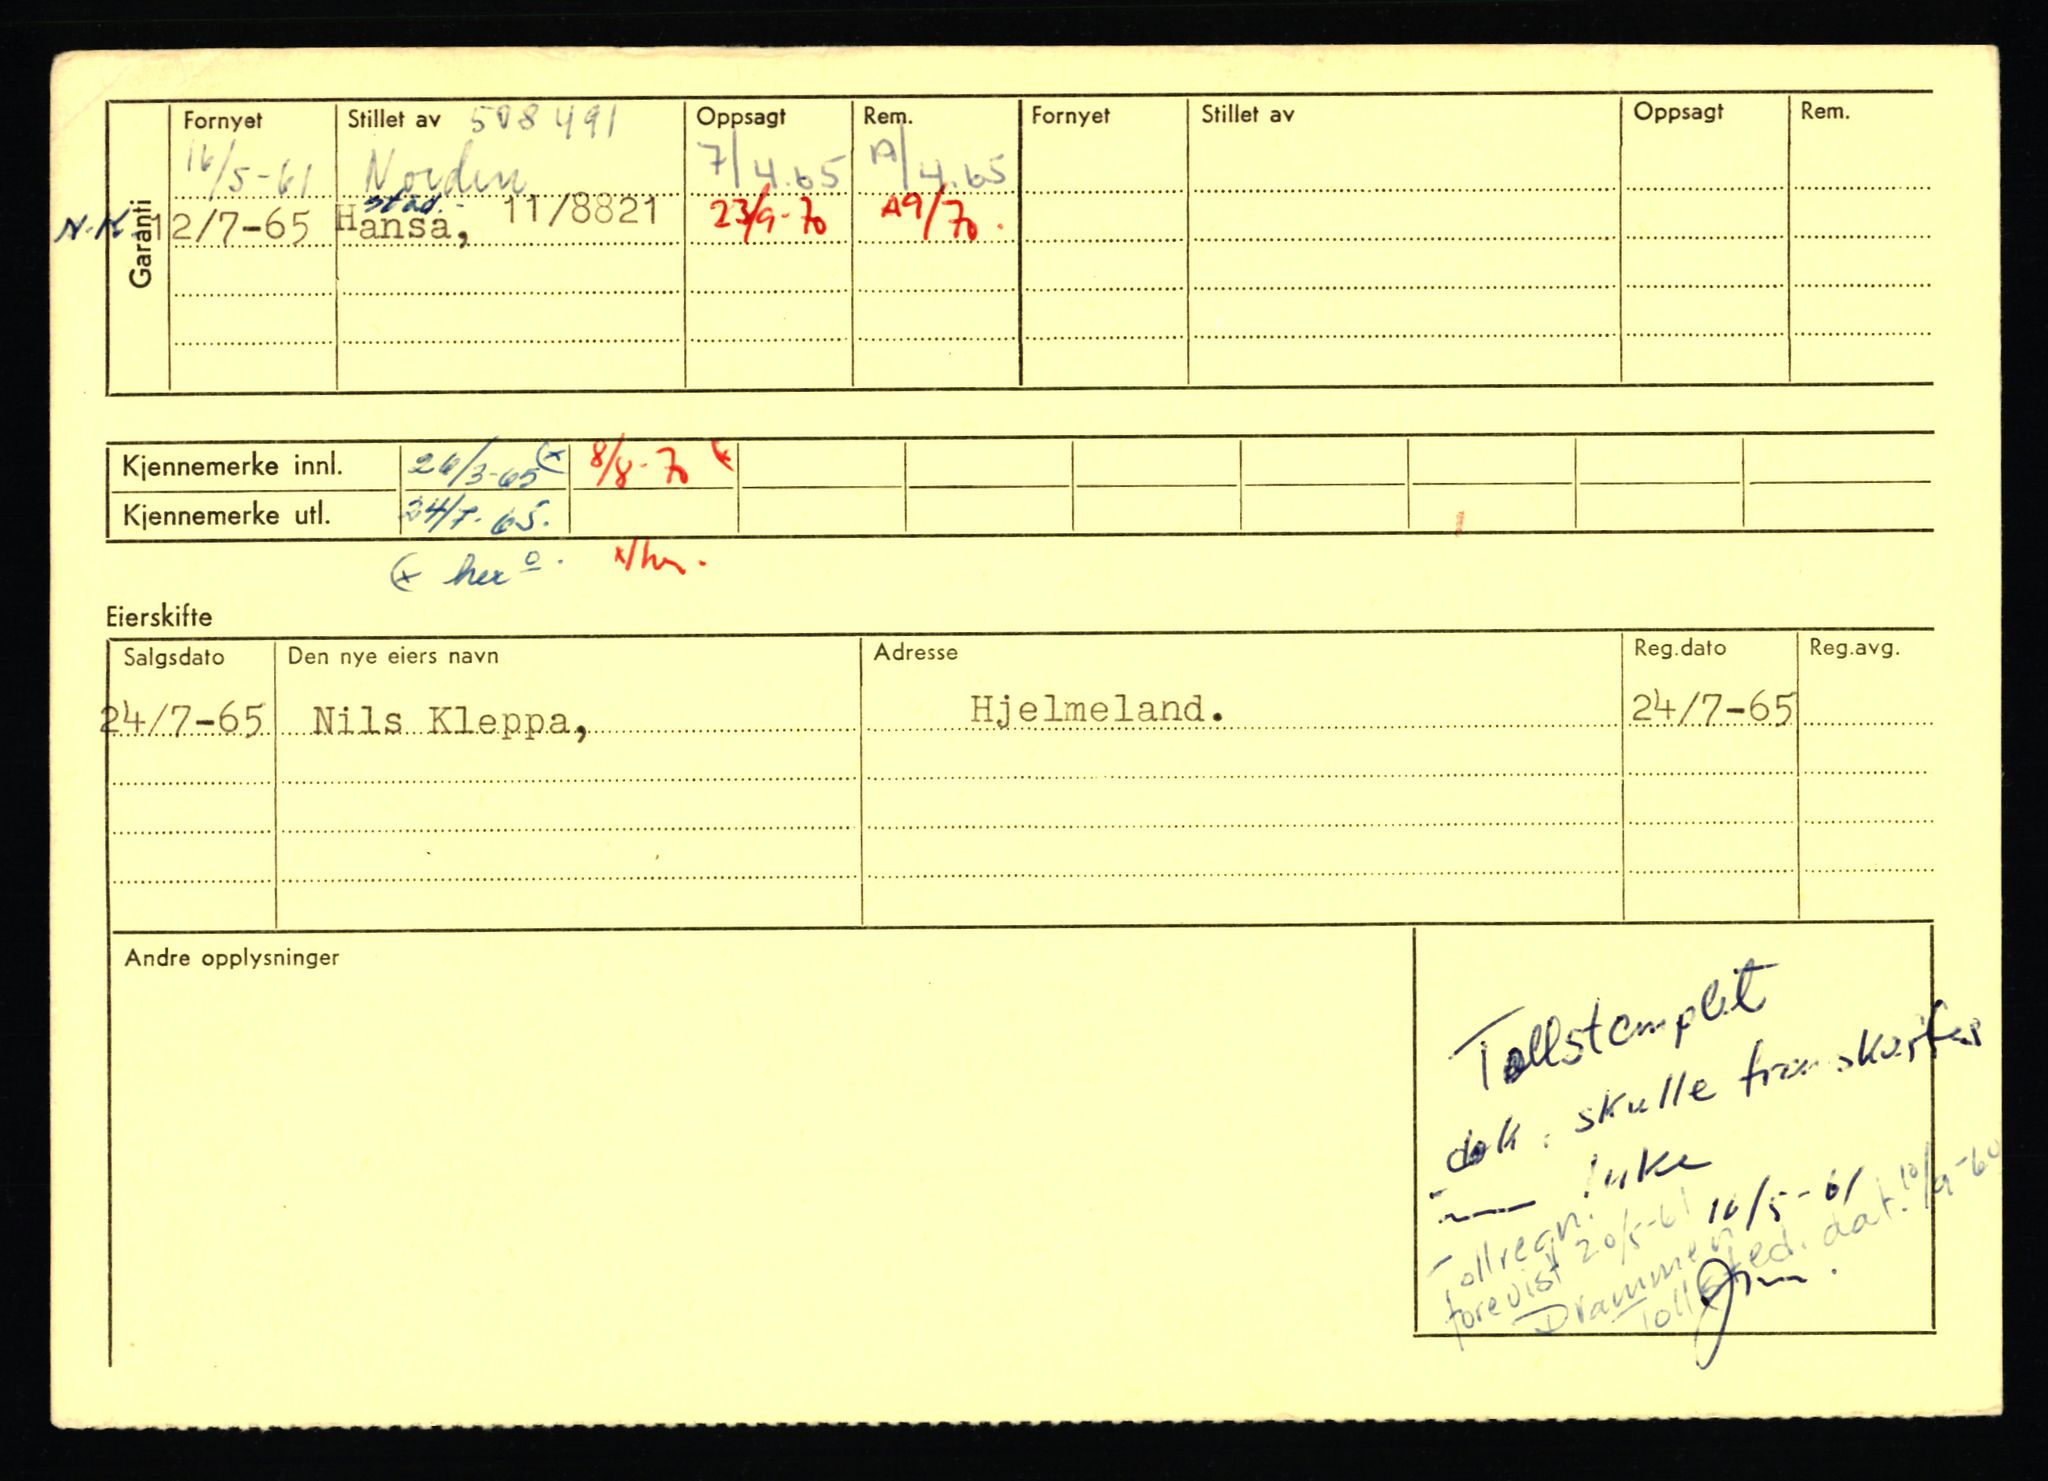 Garanti
Fornyet Stillet av 508491 Oppsagt Rem. Fornyet Stillet av Oppsagt Rem.
16/5-61 Norden 7/4.65 A/4.65
stad.
N.K. 12/7-65 Hansa, 11/8821 23/9-70 A9/70.
Kjennemerke innl. 26/3-65 (x 8/8-70 (x
Kjennemerke utl. 24/7-65.
(x her o. x/her.
Eierskifte
Salgsdato Den nye eiers navn Adresse Reg.dato Reg.avg.
24/7-65 Nils Kleppa, Hjelmeland. 24/7-65
Andre opplysninger
Tollstemplet
dok. skulle framskaffes
16/5-61
Tollregn.
forevist 20/5-61
Drammen
Tollsted. dat. 10/9-60